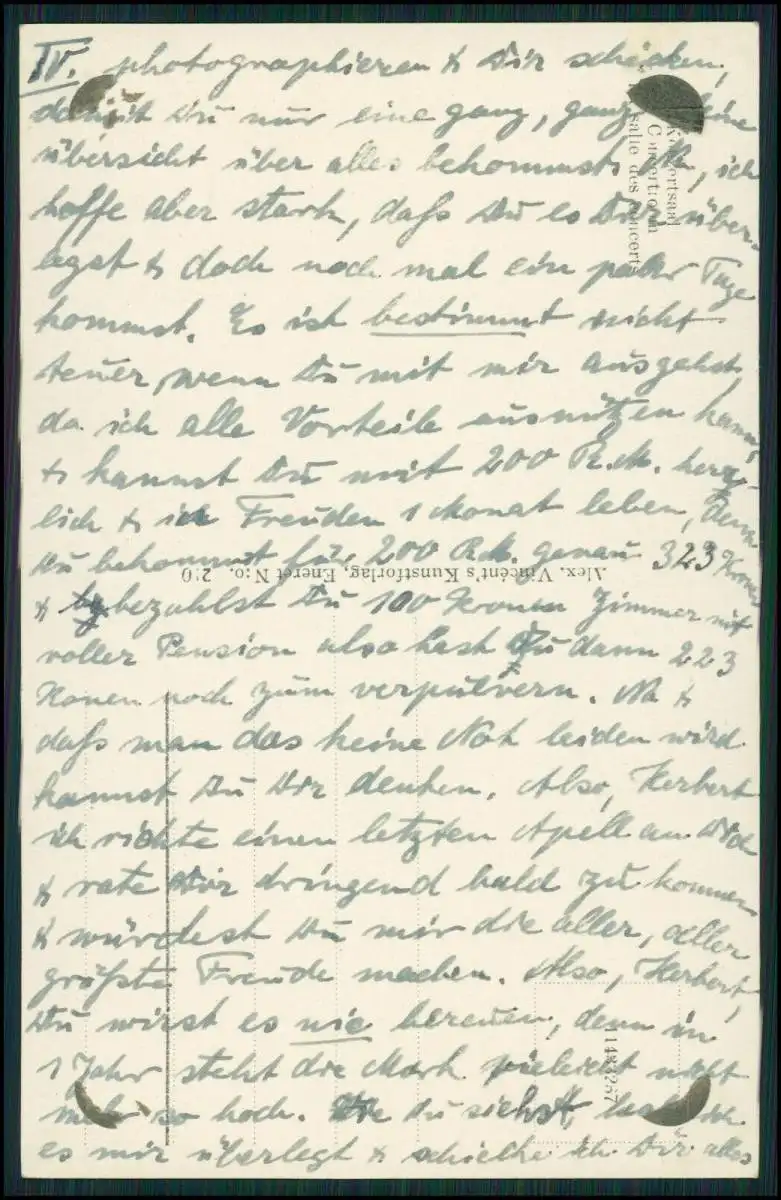 IV. photographieren & Dir schicken,
damit Du nur eine ganz, ganz kleine
übersicht über alles bekommst, ich
hoffe aber stark, daß Du es Dir über-
legst & doch noch mal ein paar Tage
kommst. Es ist bestimmt nicht
teuer, wenn Du mit mir ausgehst,
da ich alle Vorteile ausnützen kann,
& kannst Du mit 200 R.M. herr-
lich & in Freuden 1 Monat leben, denn
Du bekommst für 200 R.M. genau 323 Kronen
& bezahlst Du 100 Kronen Zimmer mit
voller Pension also hast Du dann 223
Kronen noch zum verpulvern. Na &
daß man das keine Not leiden wird
kannst Du Dir denken. Also, Herbert
ich richte einen letzten Apell an Dich
& rate Dir dringend bald zu kommen
& würdest Du mir die aller, aller
größte Freude machen. Also, Herbert,
Du wirst es nie bereuen, denn in
1 Jahr steht die Mark vieleicht nicht
mehr so hoch. Wie Du siehst, hab ich
es mir überlegt & schicke ich Dir alles
Koncertsaal
Concertroom
salle des concerts
Alex. Vincent's Kunstforlag, Eneret N:o. 2:0